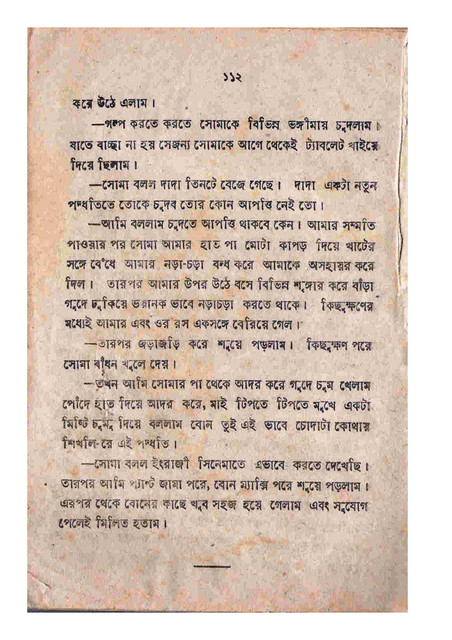 ১১২
করে উঠে এলাম।
—গল্প করতে করতে সোমাকে বিভিন্ন ভঙ্গীমায় চুদলাম।
যাতে বাচ্ছা না হয় সেজন্য সোমাকে আগে থেকেই ট্যাবলেট খাইয়ে
দিয়ে ছিলাম।
—সোমা বলল দাদা তিনটে বেজে গেছে। দাদা একটা নতুন
পদ্ধতিতে তোকে চুদব তোর কোন আপত্তি নেই তো।
—আমি বললাম চুদতে আপত্তি থাকবে কেন। আমার সম্মতি
পাওয়ার পর সোমা আমার হাত পা মোটা কাপড় দিয়ে খাটের
সঙ্গে বেঁধে আমার নড়া-চড়া বন্ধ করে আমাকে অসহায়র করে
দিল। তারপর আমার উপর উঠে বসে বিভিন্ন শৃঙ্গার করে বাঁড়া
গুদে ঢুকিয়ে ভয়ানক ভাবে নড়াচড়া করতে থাকে। কিছুক্ষণের
মধ্যেই আমার এবং ওর রস একসঙ্গে বেরিয়ে গেল।
—তারপর জড়াজড়ি করে শুয়ে পড়লাম। কিছুক্ষণ পরে
সোমা বাঁধন খুলে দেয়।
—তখন আমি সোমার পা থেকে আদর করে গুদে চুমু খেলাম
পোঁদে হাত দিয়ে আদর করে, মাই টিপতে টিপতে মুখে একটা
মিষ্টি চুমু দিয়ে বললাম বোন তুই এই ভাবে চোদাটা কোথায়
শিখলি-রে এই পদ্ধতি।
—সোমা বলল ইংরাজী সিনেমাতে এভাবে করতে দেখেছি।
তারপর আমি প্যান্ট জামা পরে, বোন ম্যাক্সি পরে শুয়ে পড়লাম।
এরপর থেকে বোনের কাছে খুব সহজ হয়ে গেলাম এবং সুযোগ
পেলেই মিলিত হতাম।